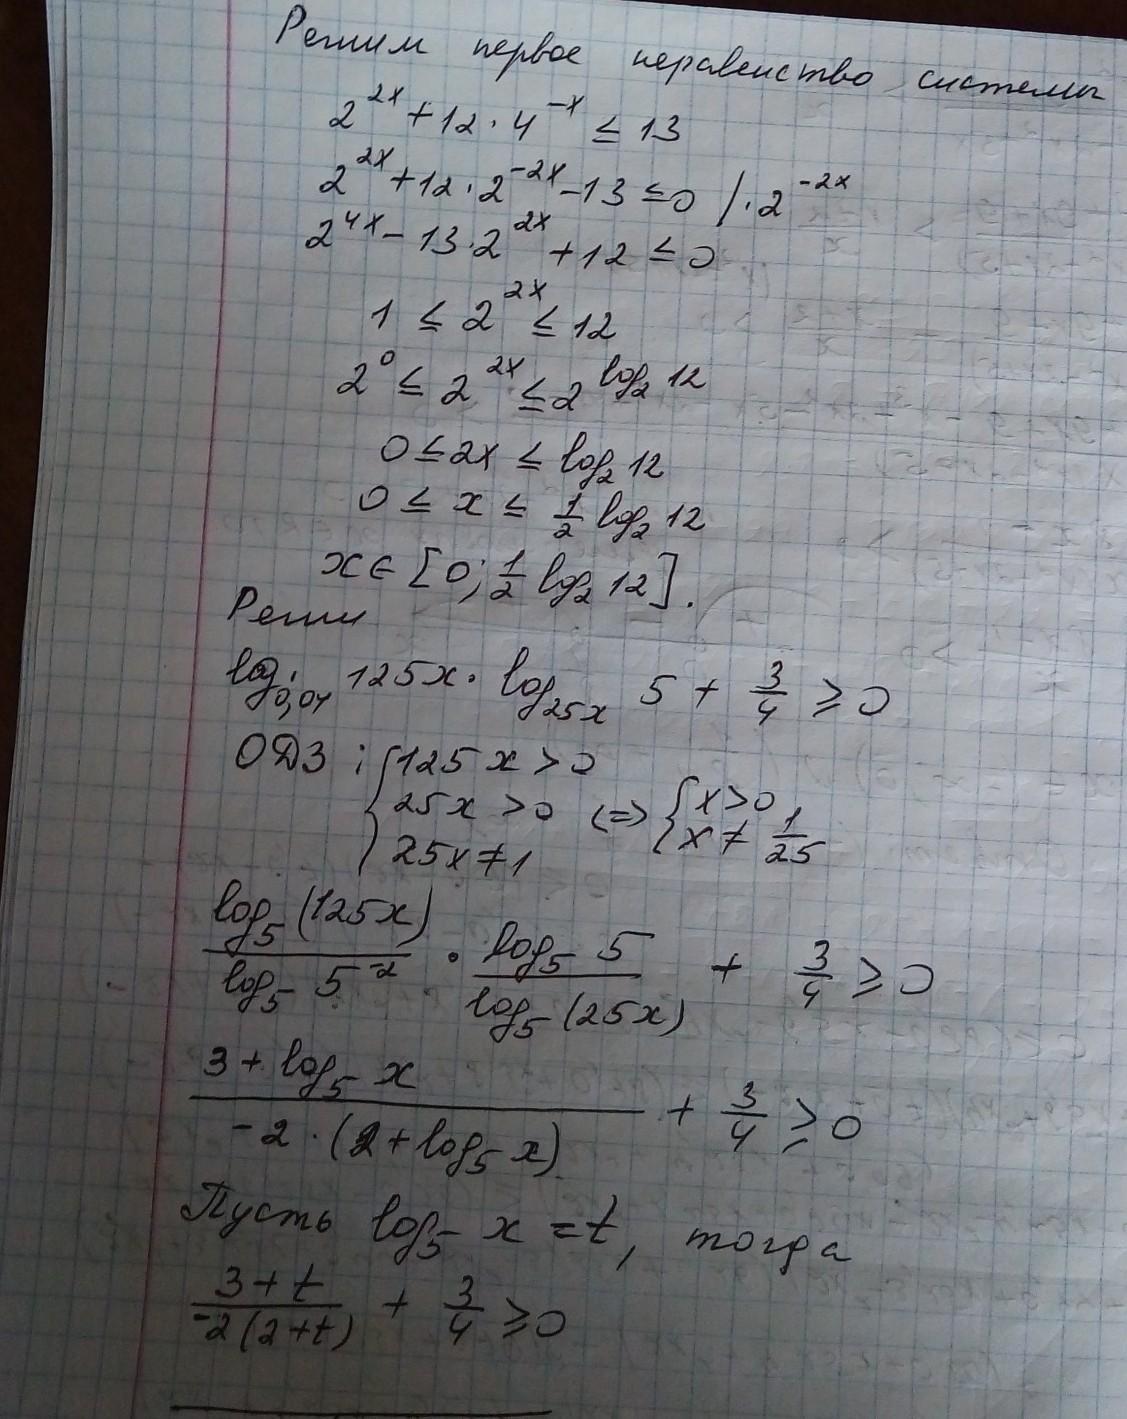 Решим первое неравенство системы
2^{2x} + 12 · 4^{-x} ≤ 13
2^{2x} + 12 · 2^{-2x} - 13 ≤ 0 / · 2^{-2x}
2^{4x} - 13 · 2^{2x} + 12 ≤ 0
1 ≤ 2^{2x} ≤ 12
2^0 ≤ 2^{2x} ≤ 2^{log_2 12}
0 ≤ 2x ≤ log_2 12
0 ≤ x ≤ \frac{1}{2} log_2 12
x ∈ [0; \frac{1}{2} log_2 12].
Реши
log_{0,04} 125x · log_{25x} 5 + \frac{3}{4} ≥ 0
ОДЗ : { 125x > 0
25x > 0 <=> { x > 0
25x ≠ 1 x ≠ \frac{1}{25}
\frac{log_5 (125x)}{log_5 5^{-2}} · \frac{log_5 5}{log_5 (25x)} + \frac{3}{4} ≥ 0
\frac{3 + log_5 x}{-2 · (2 + log_5 x)} + \frac{3}{4} ≥ 0
Пусть log_5 x = t, тогда
\frac{3 + t}{-2 (2 + t)} + \frac{3}{4} ≥ 0